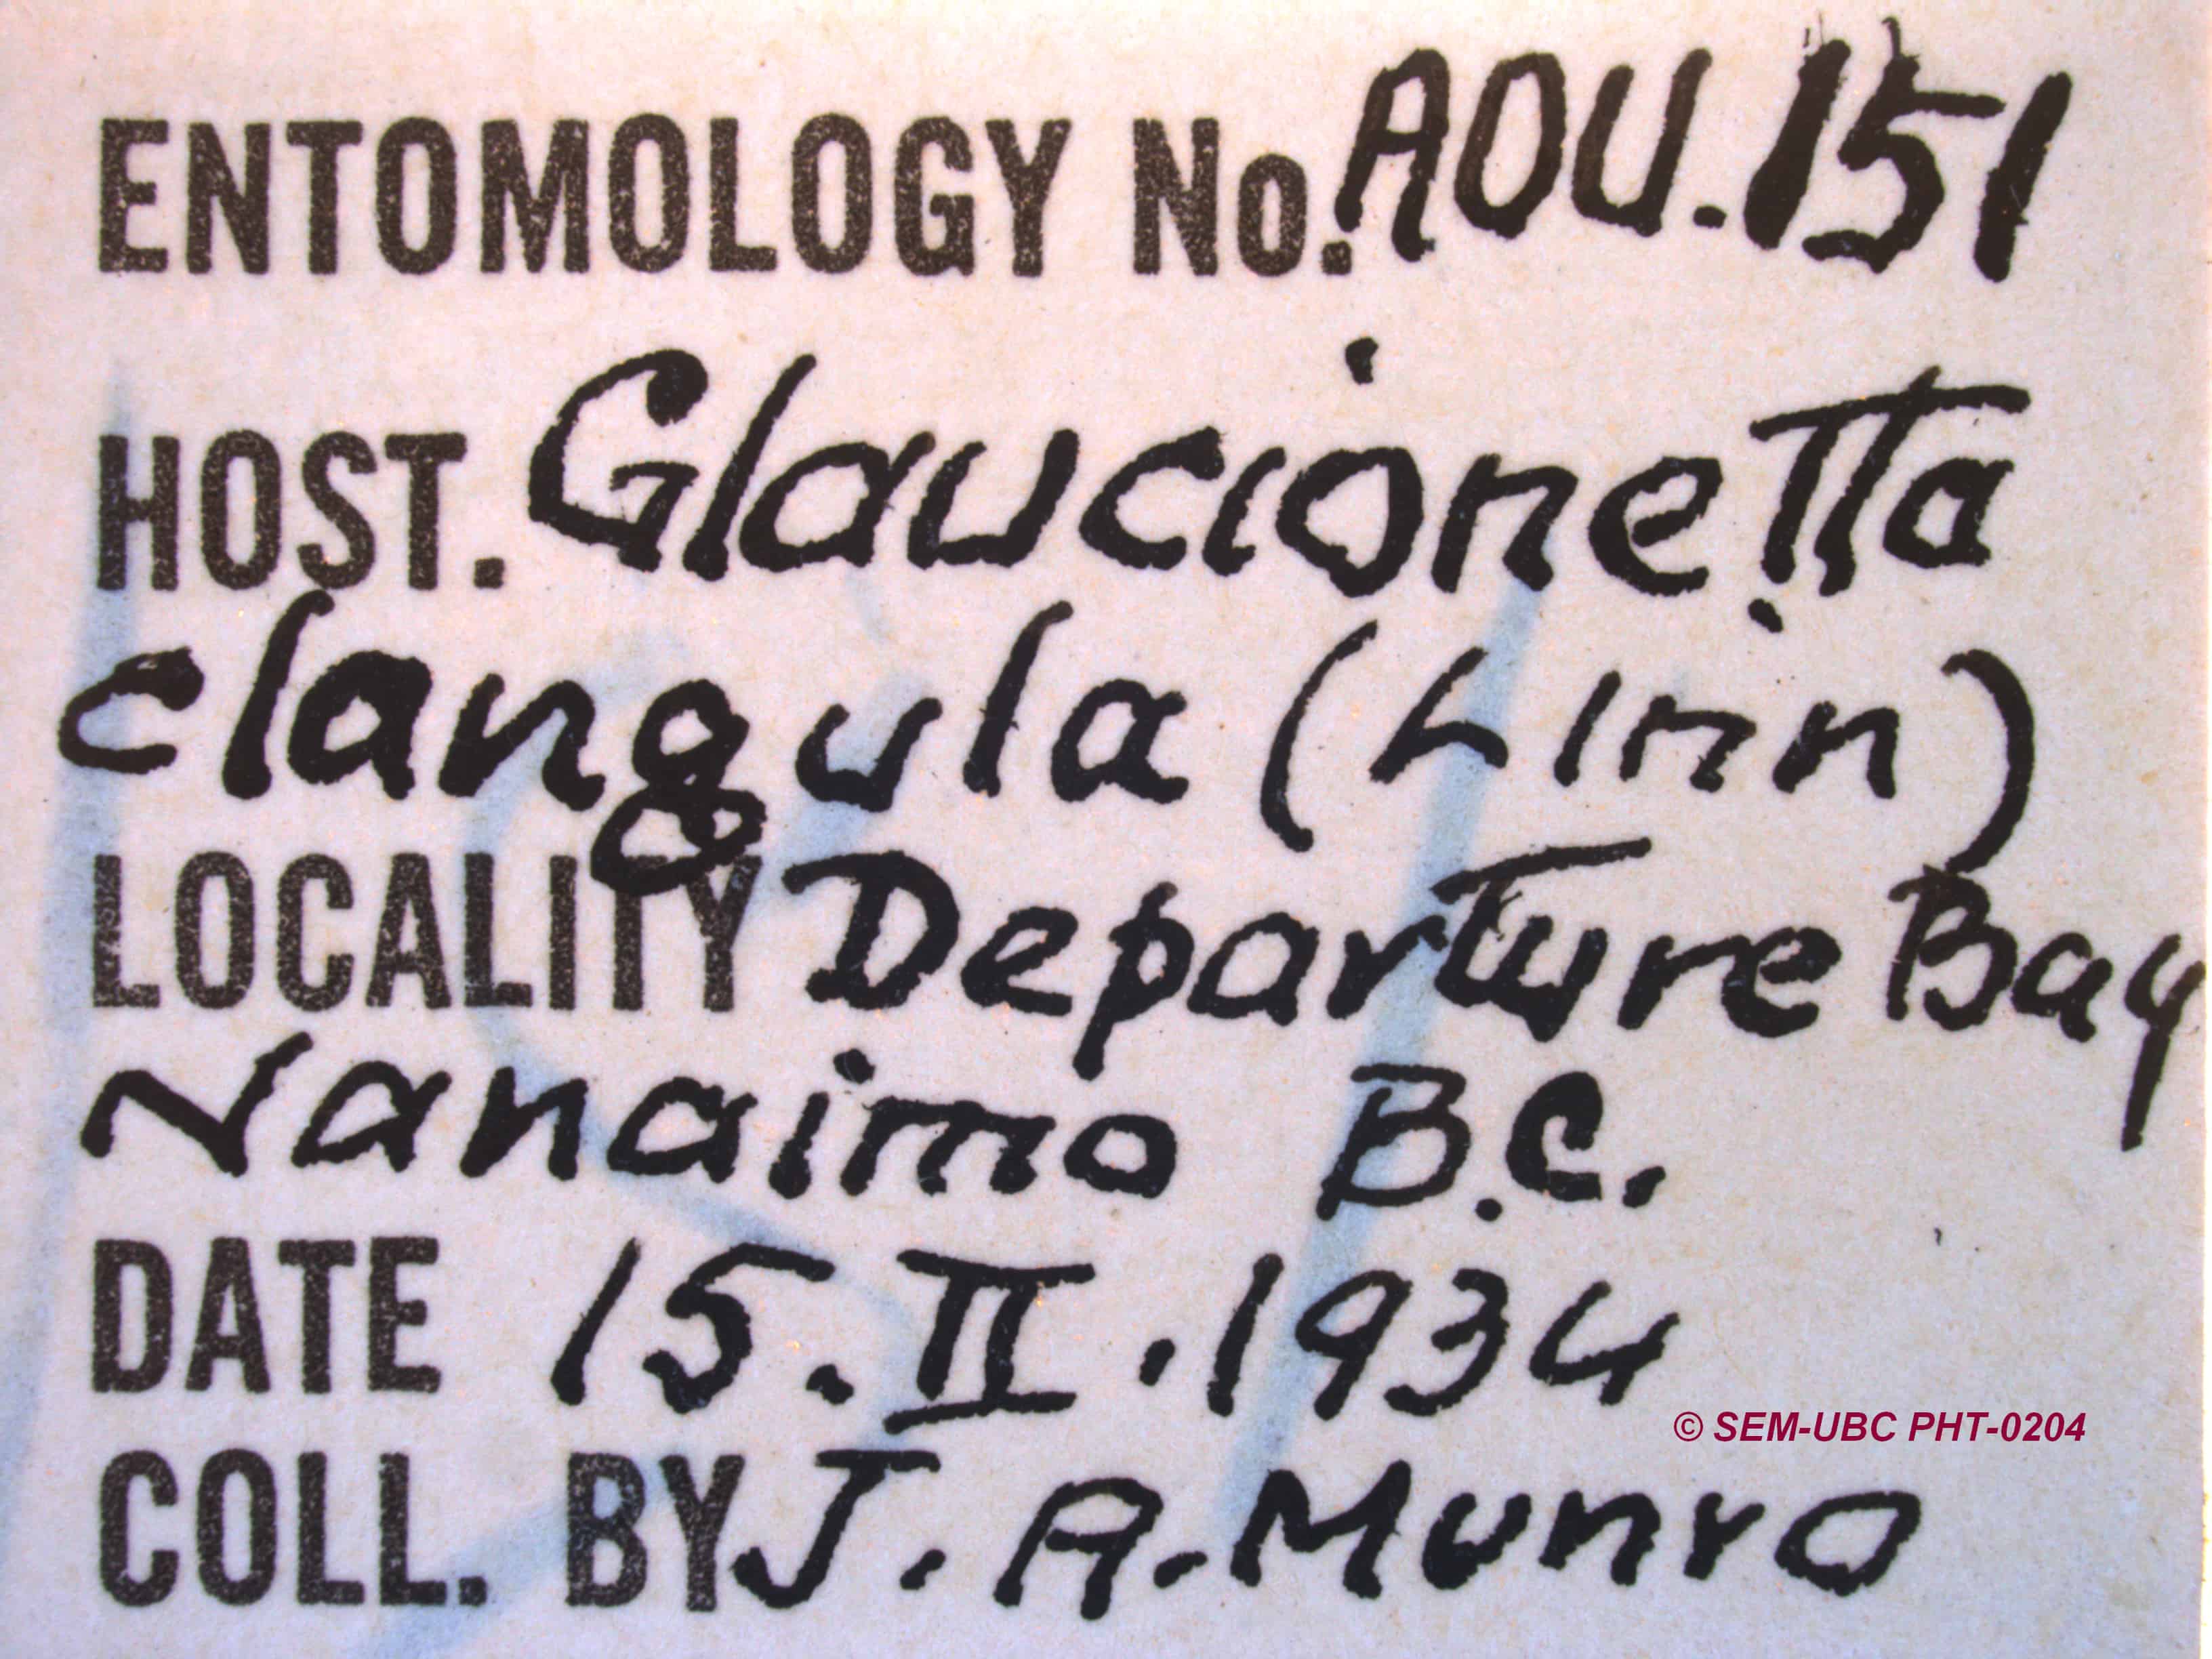 ENTOMOLOGY No. AOU. 151
HOST. Glaucionetta
clangula (Linn)
LOCALITY Departure Bay
Nanaimo B.C.
DATE 15. II. 1934
© SEM-UBC PHT-0204
COLL. BY J. A. Munro